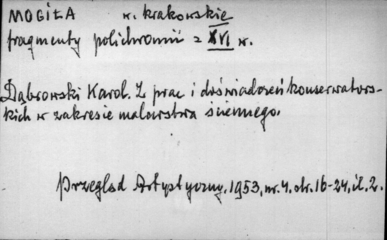 MOGIŁA w. krakowskie
fragmenty polichromii z XVI w.
Dąbrowski Karol. Z prac i doświadczeń konserwators-
kich w zakresie malarstwa ściennego.
Przegląd Artystyczny, 1953, nr. 4, str. 16-24, il. 2.